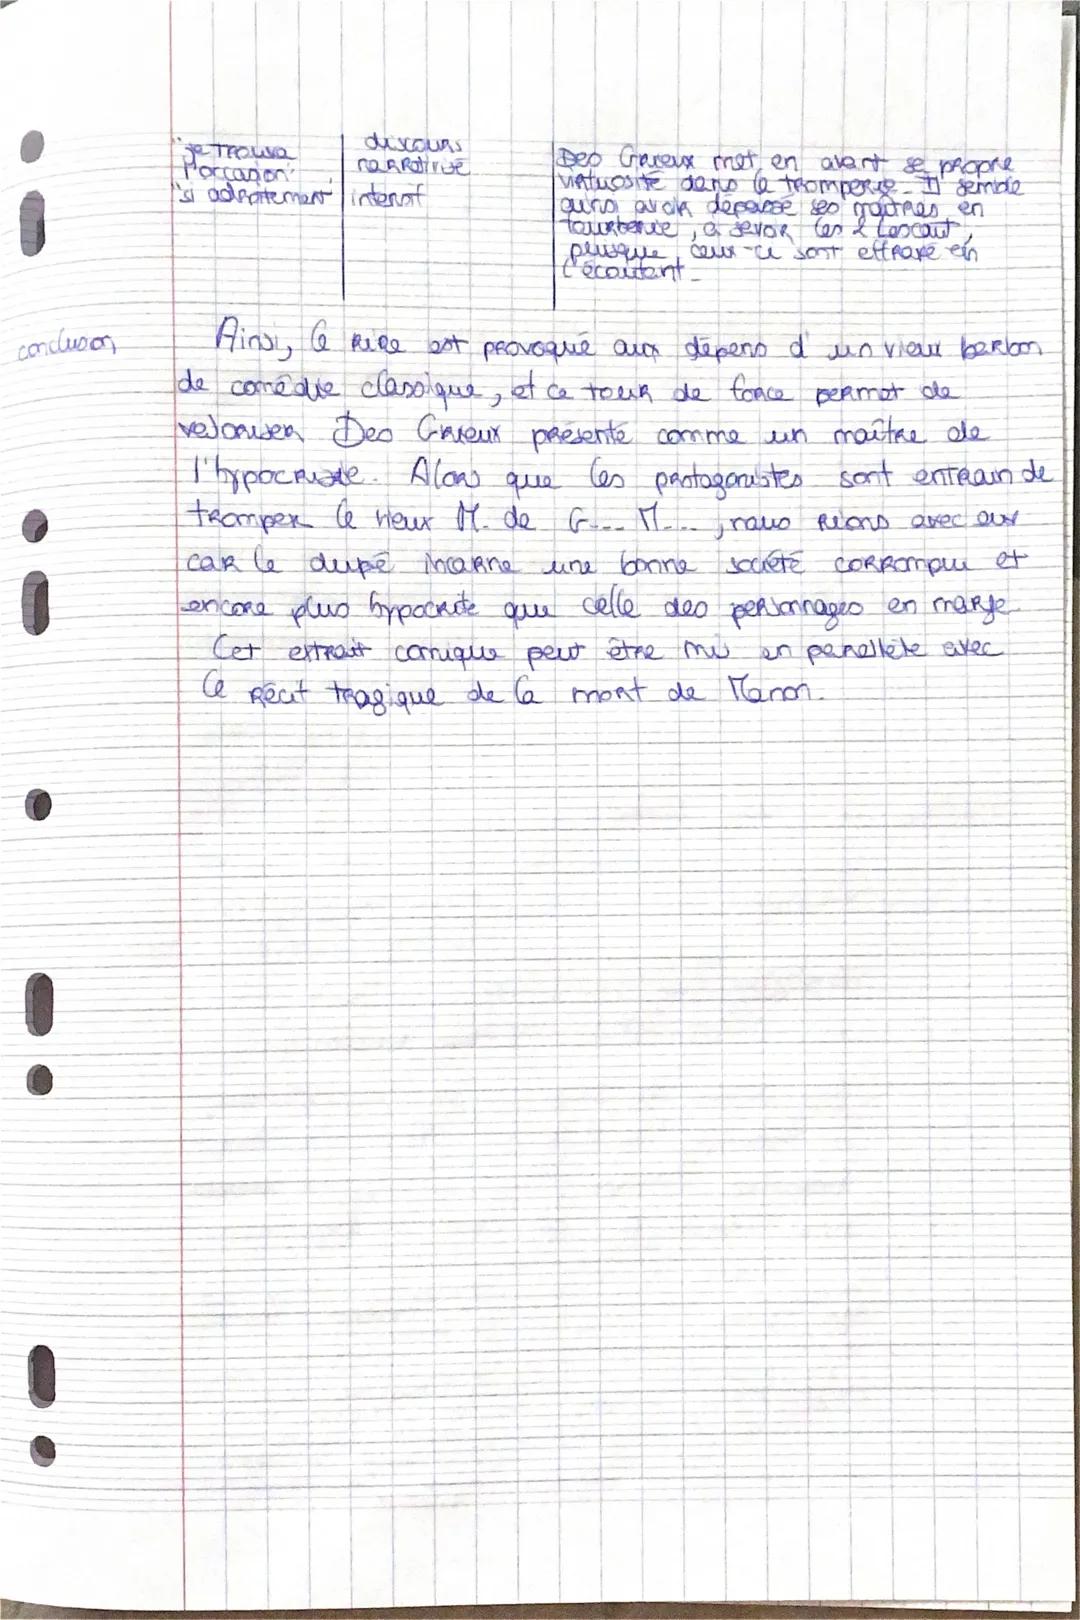 "je trouva
l'orcasion"
"si adroitement"
discours
narrativisé
intensif
Des Grieux met en avant se propre
virtuosité dans la tromperie. Il semble
ainsi avoir dépassé ses maîtres en
fourberie, à savoir les 2 Lescaut,
puisque ceux-ci sont effrayé en
l'écoutant.
conclusion
Ainsi, le rire est provoqué aux dépens d'un vieux barbon
de comédie classique, et ce tour de force permet de
valoriser Des Grieux présenté comme un maître de
l'hypocrisie. Alors que les protagonistes sont entrain de
tromper le vieux M. de G... M..., nous rions avec eux
car le dupé incarne une bonne société corrompu et
encore plus hypocrite que celle des personnages en marge
Cet extrait comique peut être mis en parallèle avec
le récit tragique de la mort de Manon.